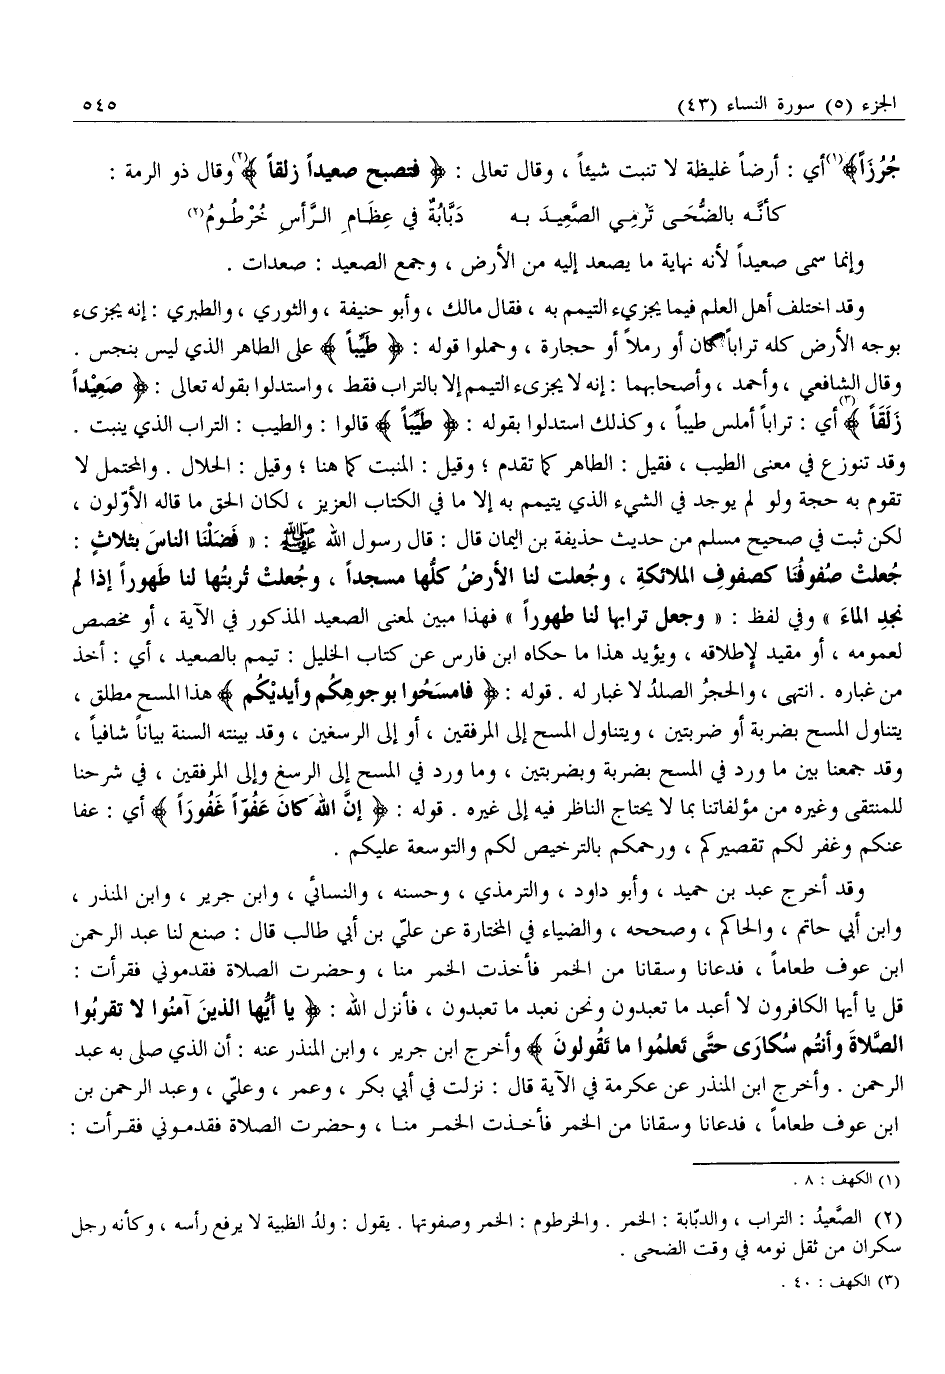 الجزء (٥) سورة النساء (٤٣) ٥٤٥
جُرُزَاً﴾(١) أي : أرضاً غليظة لا تنبت شيئاً ، وقال تعالى : ﴿ فتصبح صعيداً زلقاً ﴾(٢) وقال ذو الرمة :
كأنَّـه بالضُّحَى تَرْمِـي الصَّعِيـدَ بـه دَبَّابَةٌ في عِظَـامِ الـرَّأسِ خُرْطُـومُ(٢)
وإنما سمى صعيداً لأنه نهاية ما يصعد إليه من الأرض ، وجمع الصعيد : صعدات .
وقد اختلف أهل العلم فيما يجزيء التيمم به ، فقال مالك ، وأبو حنيفة ، والثوري ، والطبري : إنه يجزىء
بوجه الأرض كله تراباً كان أو رملاً أو حجارة ، وحملوا قوله : ﴿ طَيِّباً ﴾ على الطاهر الذي ليس بنجس .
وقال الشافعي ، وأحمد ، وأصحابهما : إنه لا يجزىء التيمم إلا بالتراب فقط ، واستدلوا بقوله تعالى : ﴿ صَعِيْداً
زَلَقَاً ﴾(٣) أي : تراباً أملس طيباً ، وكذلك استدلوا بقوله : ﴿ طَيِّبَاً ﴾ قالوا : والطيب : التراب الذي ينبت .
وقد تنوزع في معنى الطيب ، فقيل : الطاهر كما تقدم ؛ وقيل : المنبت كما هنا ؛ وقيل : الحلال . والمحتمل لا
تقوم به حجة ولو لم يوجد في الشيء الذي يتيمم به إلا ما في الكتاب العزيز ، لكان الحق ما قاله الأوّلون ،
لكن ثبت في صحيح مسلم من حديث حذيفة بن اليمان قال : قال رسول الله ﷺ : « فَضَلْنَا الناسَ بثلاثٍ :
جُعلتْ صُفوفُنَا كصفوفِ الملائكةِ ، وجُعلت لنا الأرضُ كلُّها مسجداً ، وجُعلتْ تُربتُها لنا طَهوراً إذا لم
نجدِ الماءَ » وفي لفظ : « وجعل ترابها لنا طهوراً » فهذا مبين لمعنى الصعيد المذكور في الآية ، أو مخصص
لعمومه ، أو مقيد لإطلاقه ، ويؤيد هذا ما حكاه ابن فارس عن كتاب الخليل : تيمم بالصعيد ، أي : أخذ
من غباره . انتهى ، والحجرُ الصلدُ لا غبار له . قوله : ﴿ فامسَحُوا بوجوهِكُم وأيديْكُم ﴾ هذا المسح مطلق ،
يتناول المسح بضربة أو ضربتين ، ويتناول المسح إلى المرفقين ، أو إلى الرسغين ، وقد بينته السنة بياناً شافياً ،
وقد جمعنا بين ما ورد في المسح بضربة وبضربتين ، وما ورد في المسح إلى الرسغ وإلى المرفقين ، في شرحنا
للمنتقى وغيره من مؤلفاتنا بما لا يحتاج الناظر فيه إلى غيره . قوله : ﴿ إنَّ اللهَ كانَ عَفُوّاً غَفُورَاً ﴾ أي : عفا
عنكم وغفر لكم تقصيركم ، ورحمكم بالترخيص لكم والتوسعة عليكم .
وقد أخرج عبد بن حميد ، وأبو داود ، والترمذي ، وحسنه ، والنسائي ، وابن جرير ، وابن المنذر ،
وابن أبي حاتم ، والحاكم ، وصححه ، والضياء في المختارة عن عليّ بن أبي طالب قال : صنع لنا عبد الرحمن
ابن عوف طعاماً ، فدعانا وسقانا من الخمر فأخذت الخمر منا ، وحضرت الصلاة فقدموني فقرأت :
قل يا أيها الكافرون لا أعبد ما تعبدون ونحن نعبد ما تعبدون ، فأنزل الله : ﴿ يا أيُّها الذينَ آمنُوا لا تقربُوا
الصَّلاةَ وأنتُم سُكارَى حتَّى تَعلمُوا ما تَقُولونَ ﴾ وأخرج ابن جرير ، وابن المنذر عنه : أن الذي صلى به عبد
الرحمن . وأخرج ابن المنذر عن عكرمة في الآية قال : نزلت في أبي بكر ، وعمر ، وعليّ ، وعبد الرحمن بن
ابن عوف طعاماً ، فدعانا وسقانا من الخمر فأخـذت الخمر منـا ، وحضرت الصلاة فقدمـوني فقـرأت :
(١) الكهف : ٨ .
(٢) الصَّعيدُ : التراب ، والدبّابة : الخمر . والخرطوم : الخمر وصفوتها . يقول : ولدُ الظبية لا يرفع رأسه ، وكأنه رجل
سكران من ثقل نومه في وقت الضحى .
(٣) الكهف : ٤٠ .